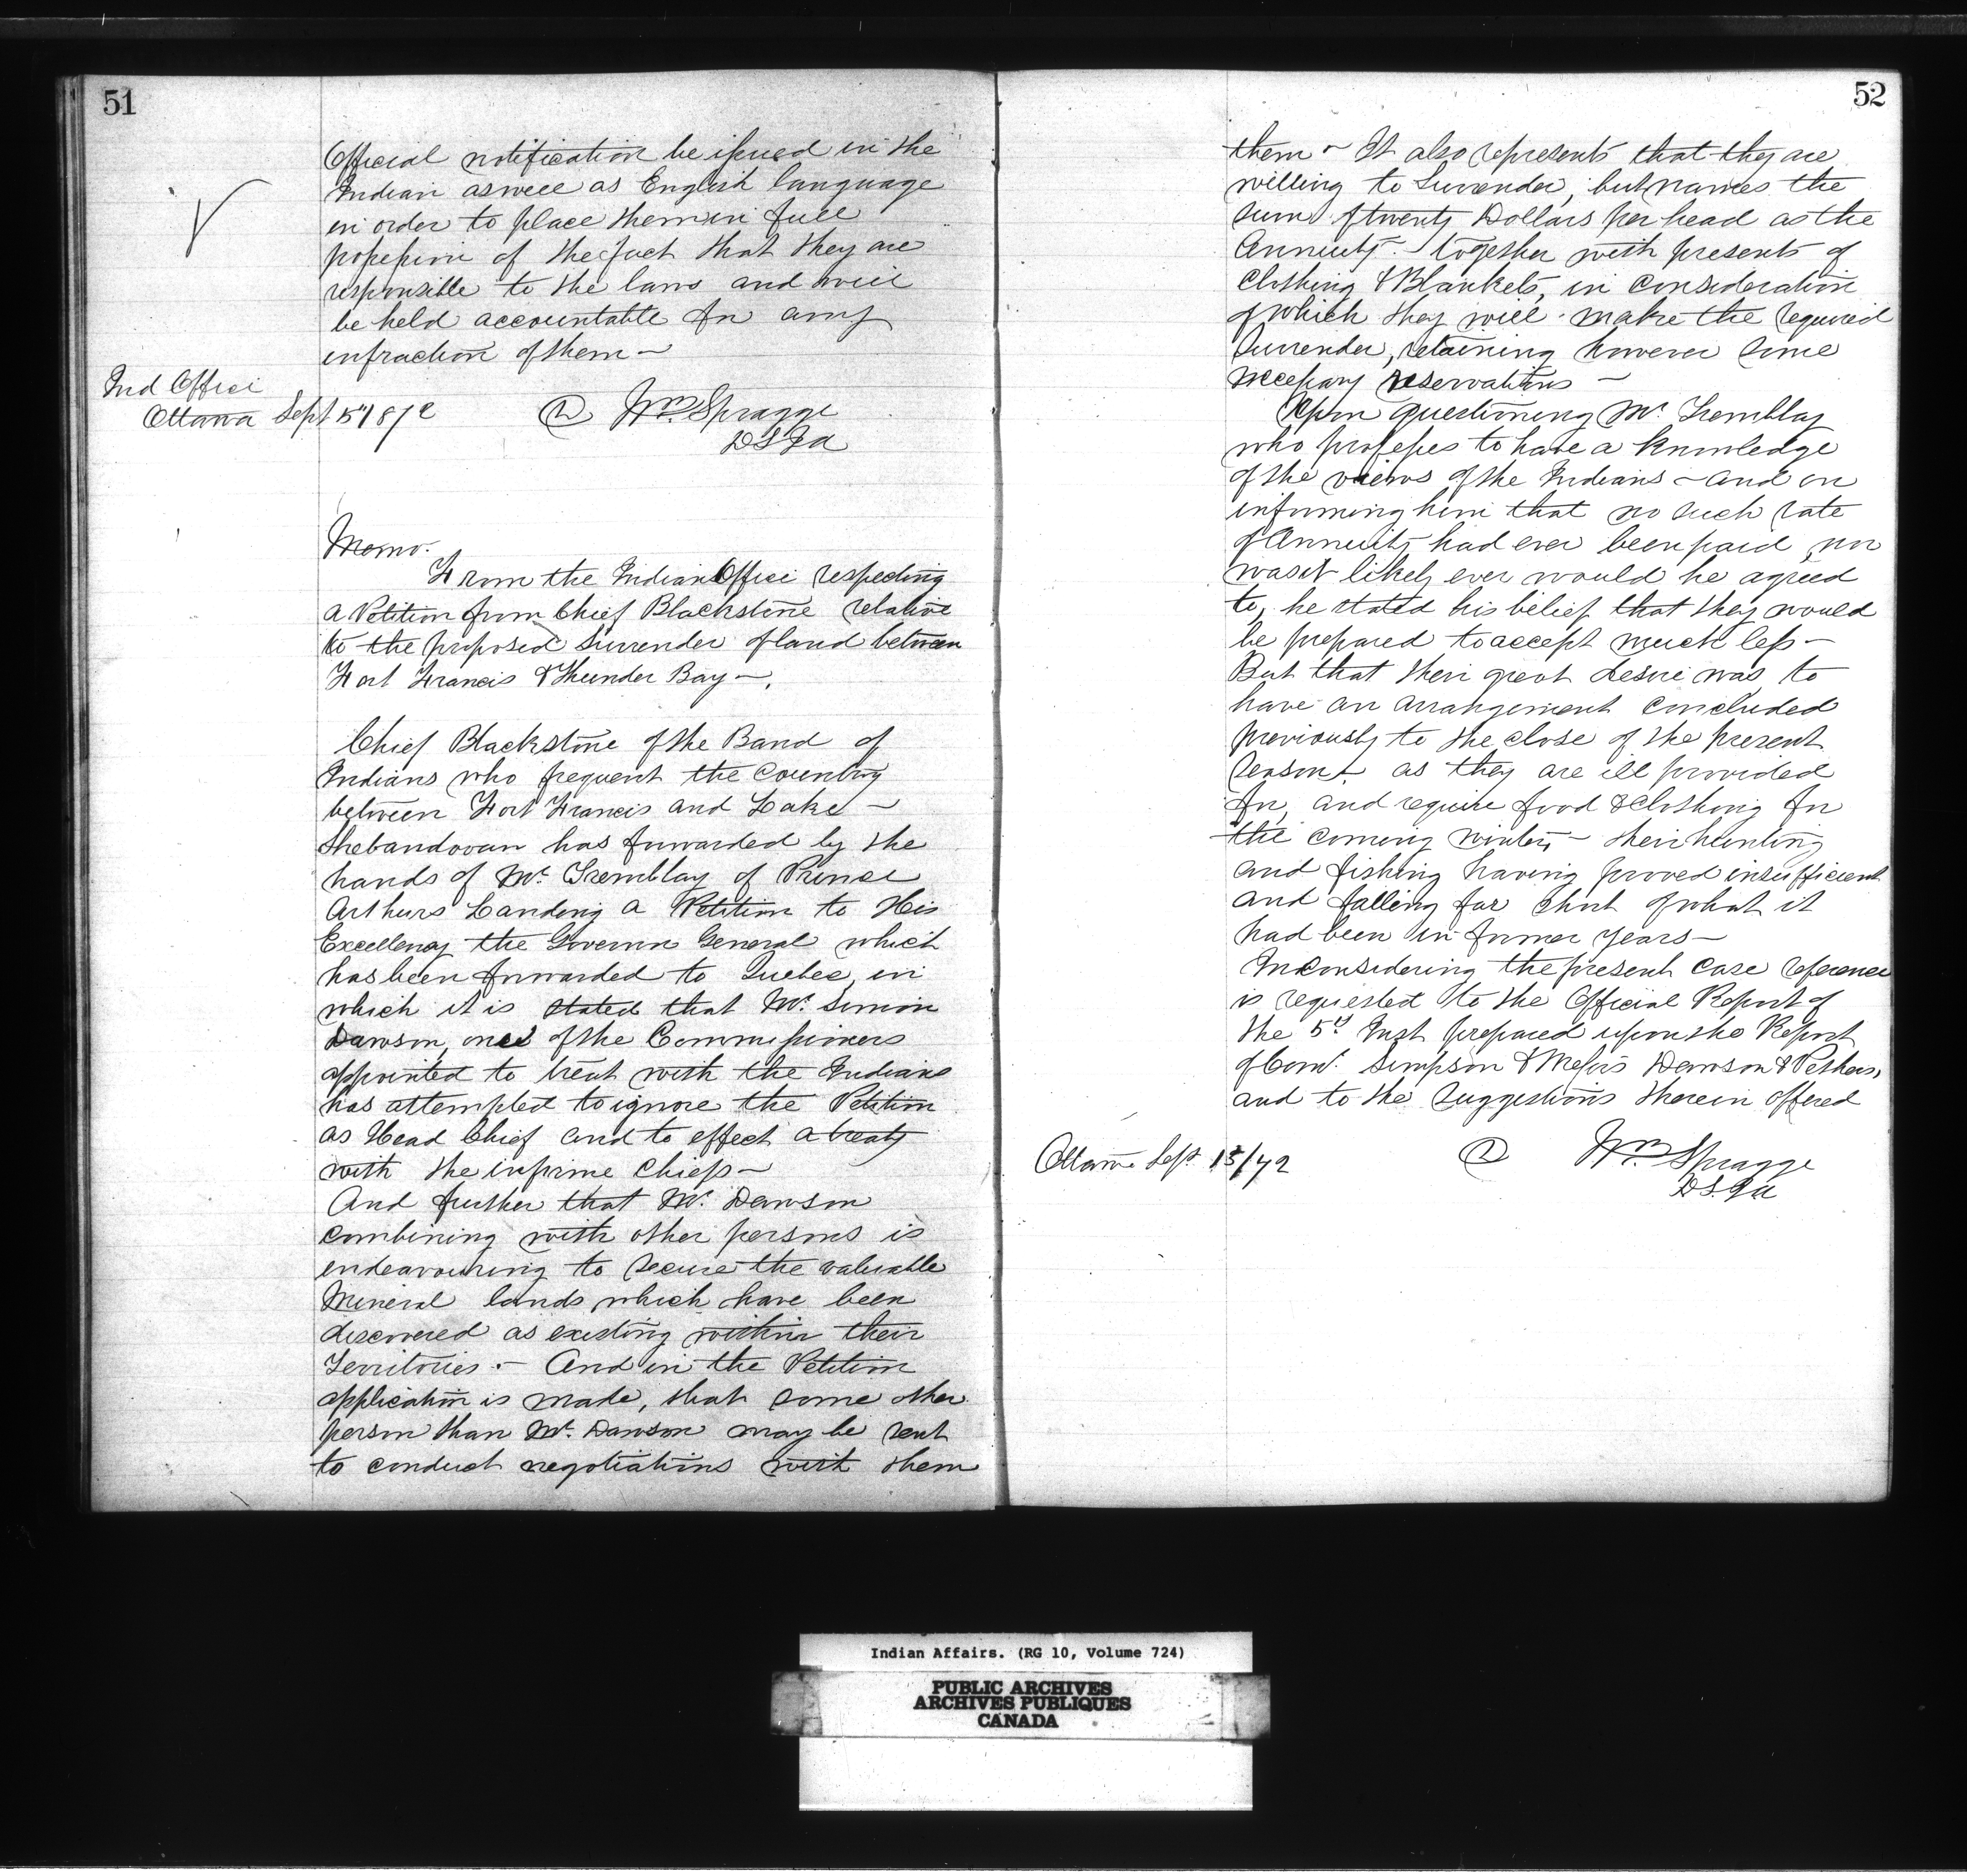 51
Official notification be issued in the
Indian as well as English language
in order to place them in full
possession of the fact that they are
responsible to the laws and will
be held accountable for any
infraction of them —
Ind Office
Ottawa Sept 5th 1872
Wm. Spragge
DSIA
Memo.
From the Indian Office respecting
a Petition from Chief Blackstone relative
to the proposed Surrender of land between
Fort Francis & Thunder Bay —.
Chief Blackstone of the Band of
Indians who frequent the Country
between Fort Francis and Lake —
Shebandowan has forwarded by the
hands of Mr. Tremblay of Prince
Arthurs Landing a Petition to His
Excellency the Governor General which
has been forwarded to Quebec, in
which it is stated that Mr. Simon
Dawson, one of the Commissioners
appointed to treat with the Indians
has attempted to ignore the Petition
as Head Chief and to effect a treaty
with the inferior Chiefs —
And further that Mr. Dawson
combining with other persons is
endeavouring to secure the valuable
Mineral lands which have been
discovered as existing within their
Territories. — And in the Petition
application is made, that some other
person than Mr. Dawson may be sent
to conduct negotiations with them
52
them — It also represents that they are
willing to Surrender, but names the
sum of twenty Dollars per head as the
Annuity. — together with presents of
Clothing & Blankets, in consideration
of which they will make the required
Surrender, retaining however some
necessary reservations —
Upon questioning Mr. Tremblay
who professes to have a knowledge
of the views of the Indians — and on
informing him that no such rate
of Annuity had ever been paid, nor
was it likely ever would be agreed
to, he stated his belief that they would
be prepared to accept much less —
But that their great desire was to
have an arrangement concluded
previously to the close of the present
Season. as they are ill provided
for, and require food & clothing for
the coming winter, — their hunting
and fishing having proved insufficient
and falling far short of what it
had been in former years —
In considering the present case reference
is requested to the Official Report of
the 5th Inst prepared upon the Report
of Comr. Simpson & Messrs Dawson & Pether,
and to the suggestions therein offered
Ottawa Sept 13/72
Wm. Spragge
DSIA
Indian Affairs. (RG 10, Volume 724)
PUBLIC ARCHIVES
ARCHIVES PUBLIQUES
CANADA